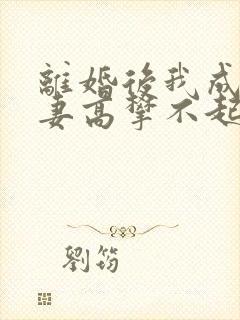 離婚後我成
妻高攀不起
劉筠